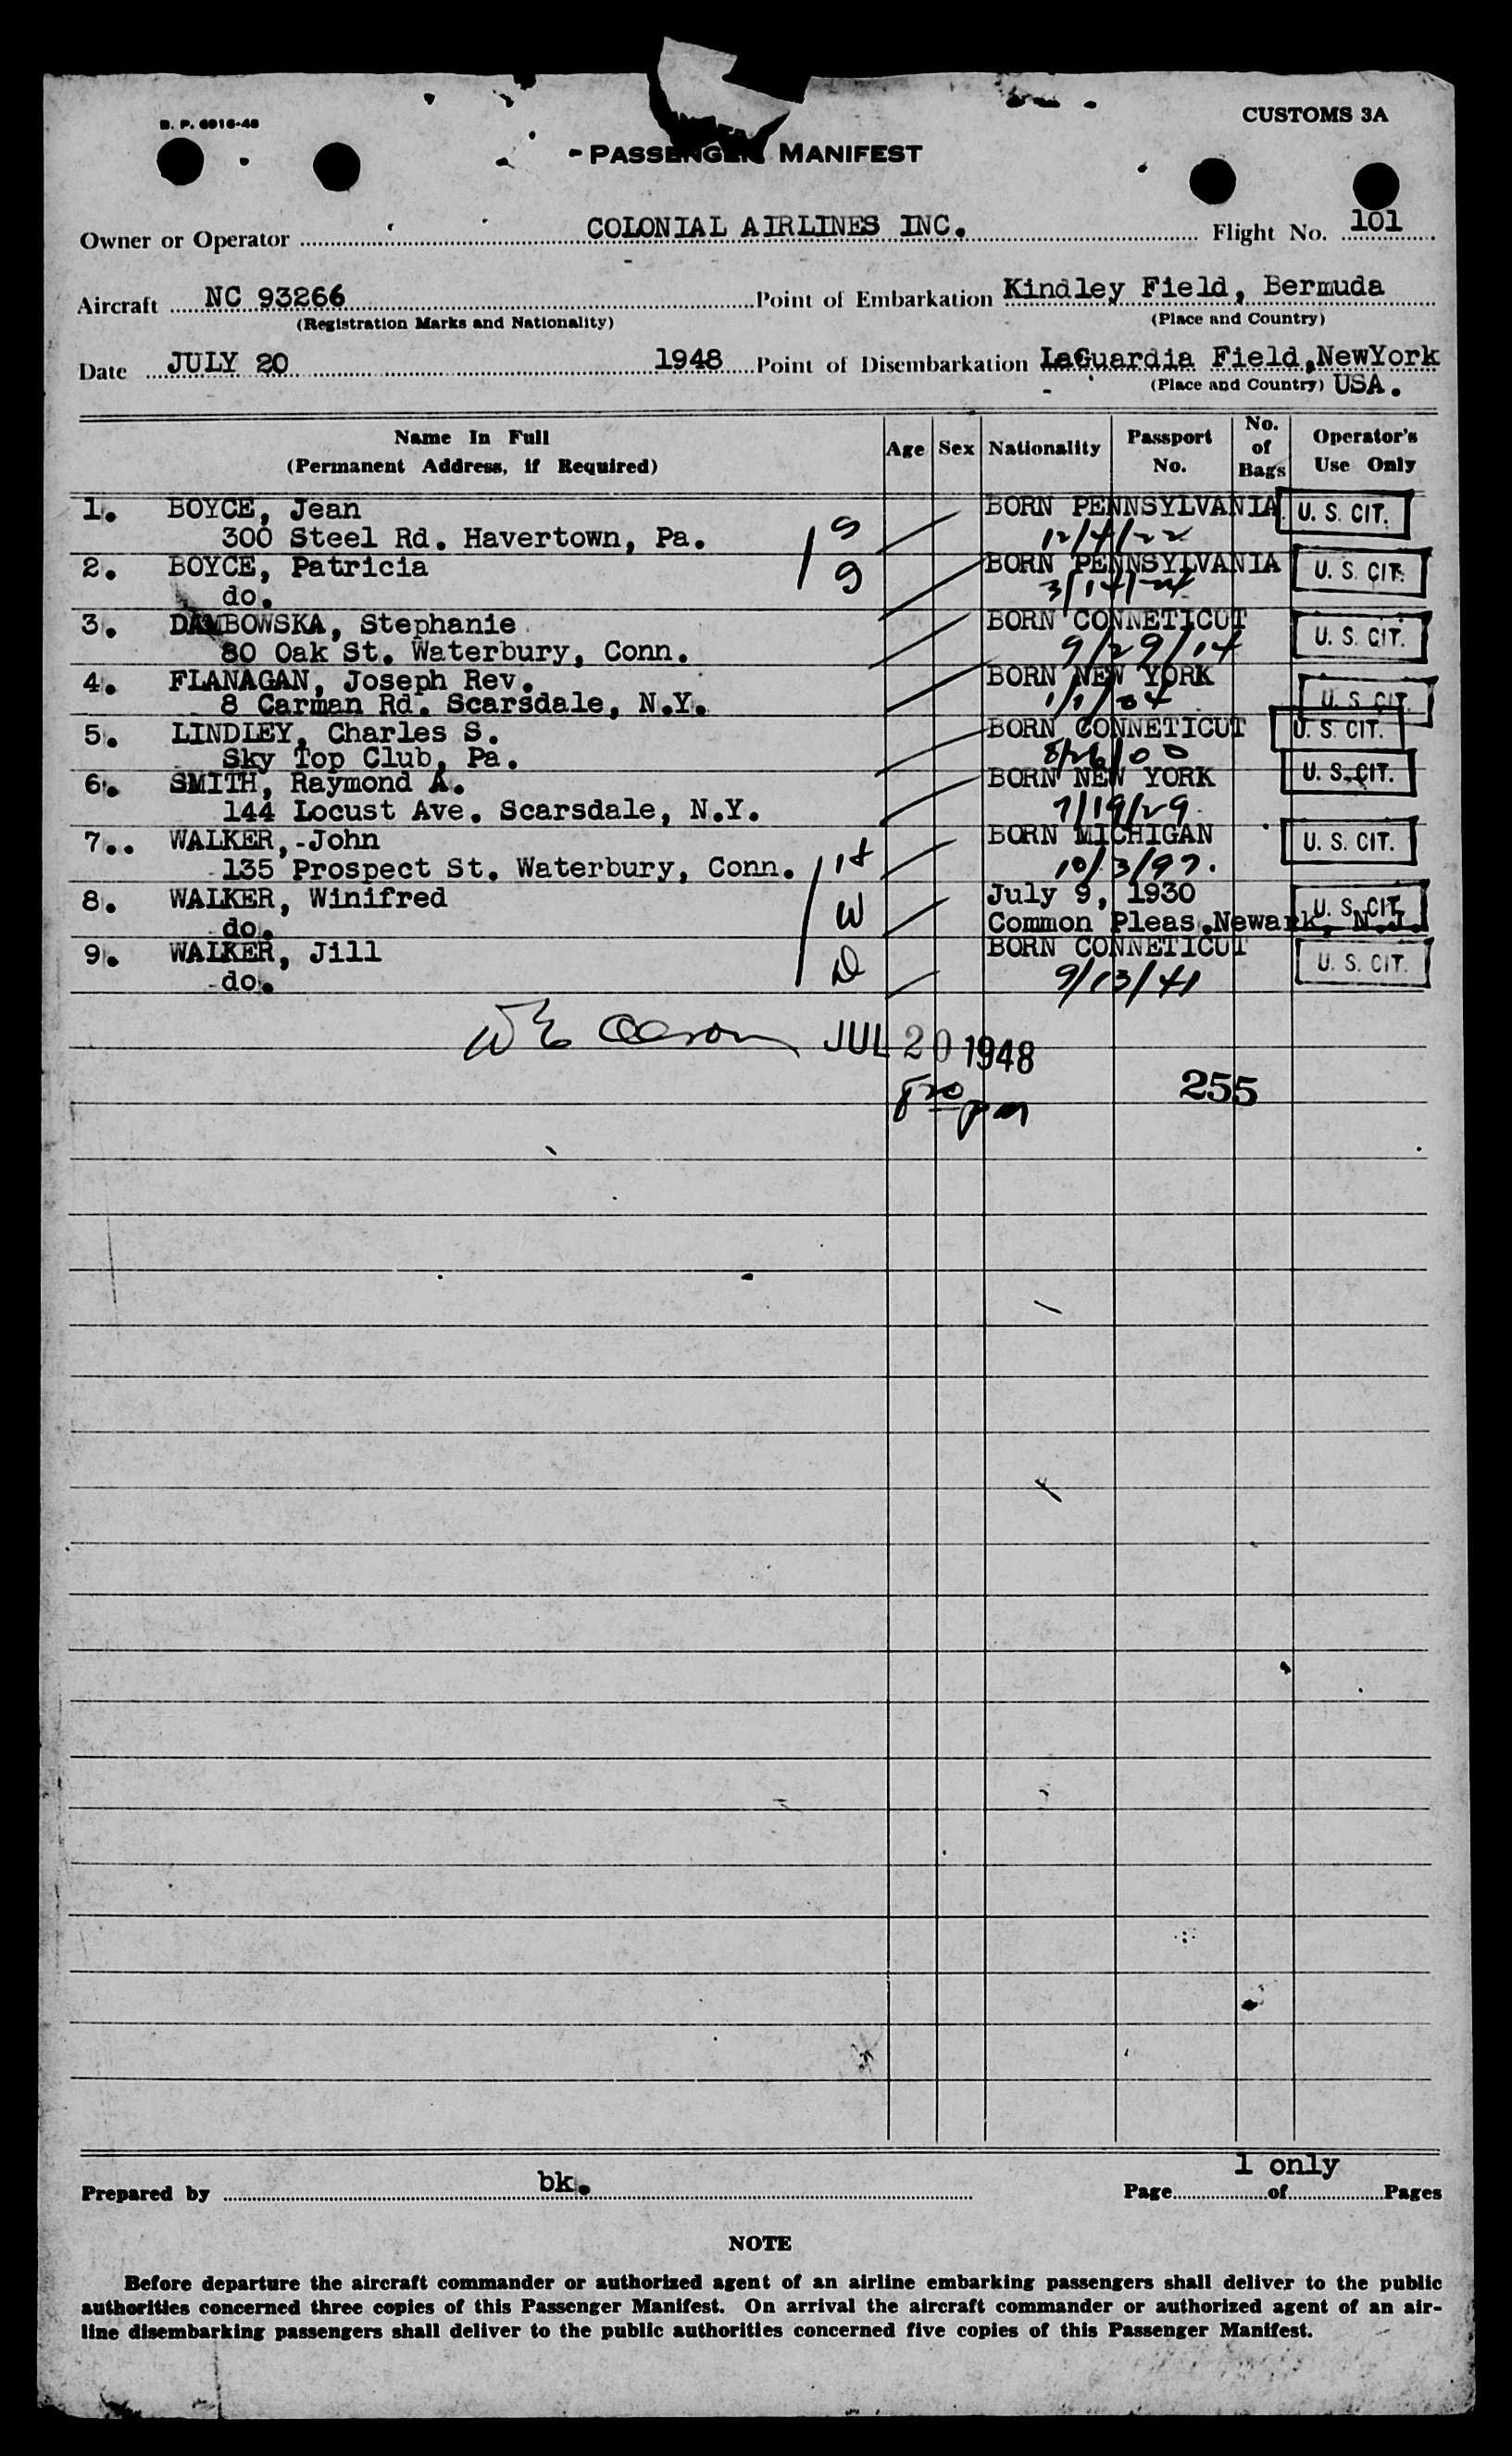 B. P. 6916-48
CUSTOMS 3A
PASSENGER MANIFEST
Owner or Operator COLONIAL AIRLINES INC. Flight No. 101
Aircraft NC 93266 Point of Embarkation Kindley Field, Bermuda
(Registration Marks and Nationality) (Place and Country)
Date JULY 20 1948 Point of Disembarkation LaGuardia Field, NewYork
(Place and Country) USA.
Name In Full (Permanent Address, if Required) Age Sex Nationality Passport No. No. of Bags Operator's Use Only
1. BOYCE, Jean BORN PENNSYLVANIA U. S. CIT.
300 Steel Rd. Havertown, Pa. S 12/4/22
2. BOYCE, Patricia S BORN PENNSYLVANIA U. S. CIT.
do. 3/14/24
3. DAMBOWSKA, Stephanie BORN CONNETICUT U. S. CIT.
80 Oak St. Waterbury, Conn. 9/29/14
4. FLANAGAN, Joseph Rev. BORN NEW YORK U. S. CIT.
8 Carman Rd. Scarsdale, N.Y. 1/1/04
5. LINDLEY, Charles S. BORN CONNETICUT U. S. CIT.
Sky Top Club, Pa. 8/26/00
6. SMITH, Raymond A. BORN NEW YORK U. S. CIT.
144 Locust Ave. Scarsdale, N.Y. 7/19/29
7.. WALKER,-John BORN MICHIGAN U. S. CIT.
135 Prospect St. Waterbury, Conn. H 10/3/97.
8. WALKER, Winifred W July 9, 1930 U. S. CIT.
do. Common Pleas.Newark, N.J.
9. WALKER, Jill BORN CONNETICUT U. S. CIT.
do. D 9/13/41
JUL 20 1948
8 20 pm 255
Prepared by bk. Page 1 only of Pages
NOTE
Before departure the aircraft commander or authorized agent of an airline embarking passengers shall deliver to the public
authorities concerned three copies of this Passenger Manifest. On arrival the aircraft commander or authorized agent of an air-
line disembarking passengers shall deliver to the public authorities concerned five copies of this Passenger Manifest.